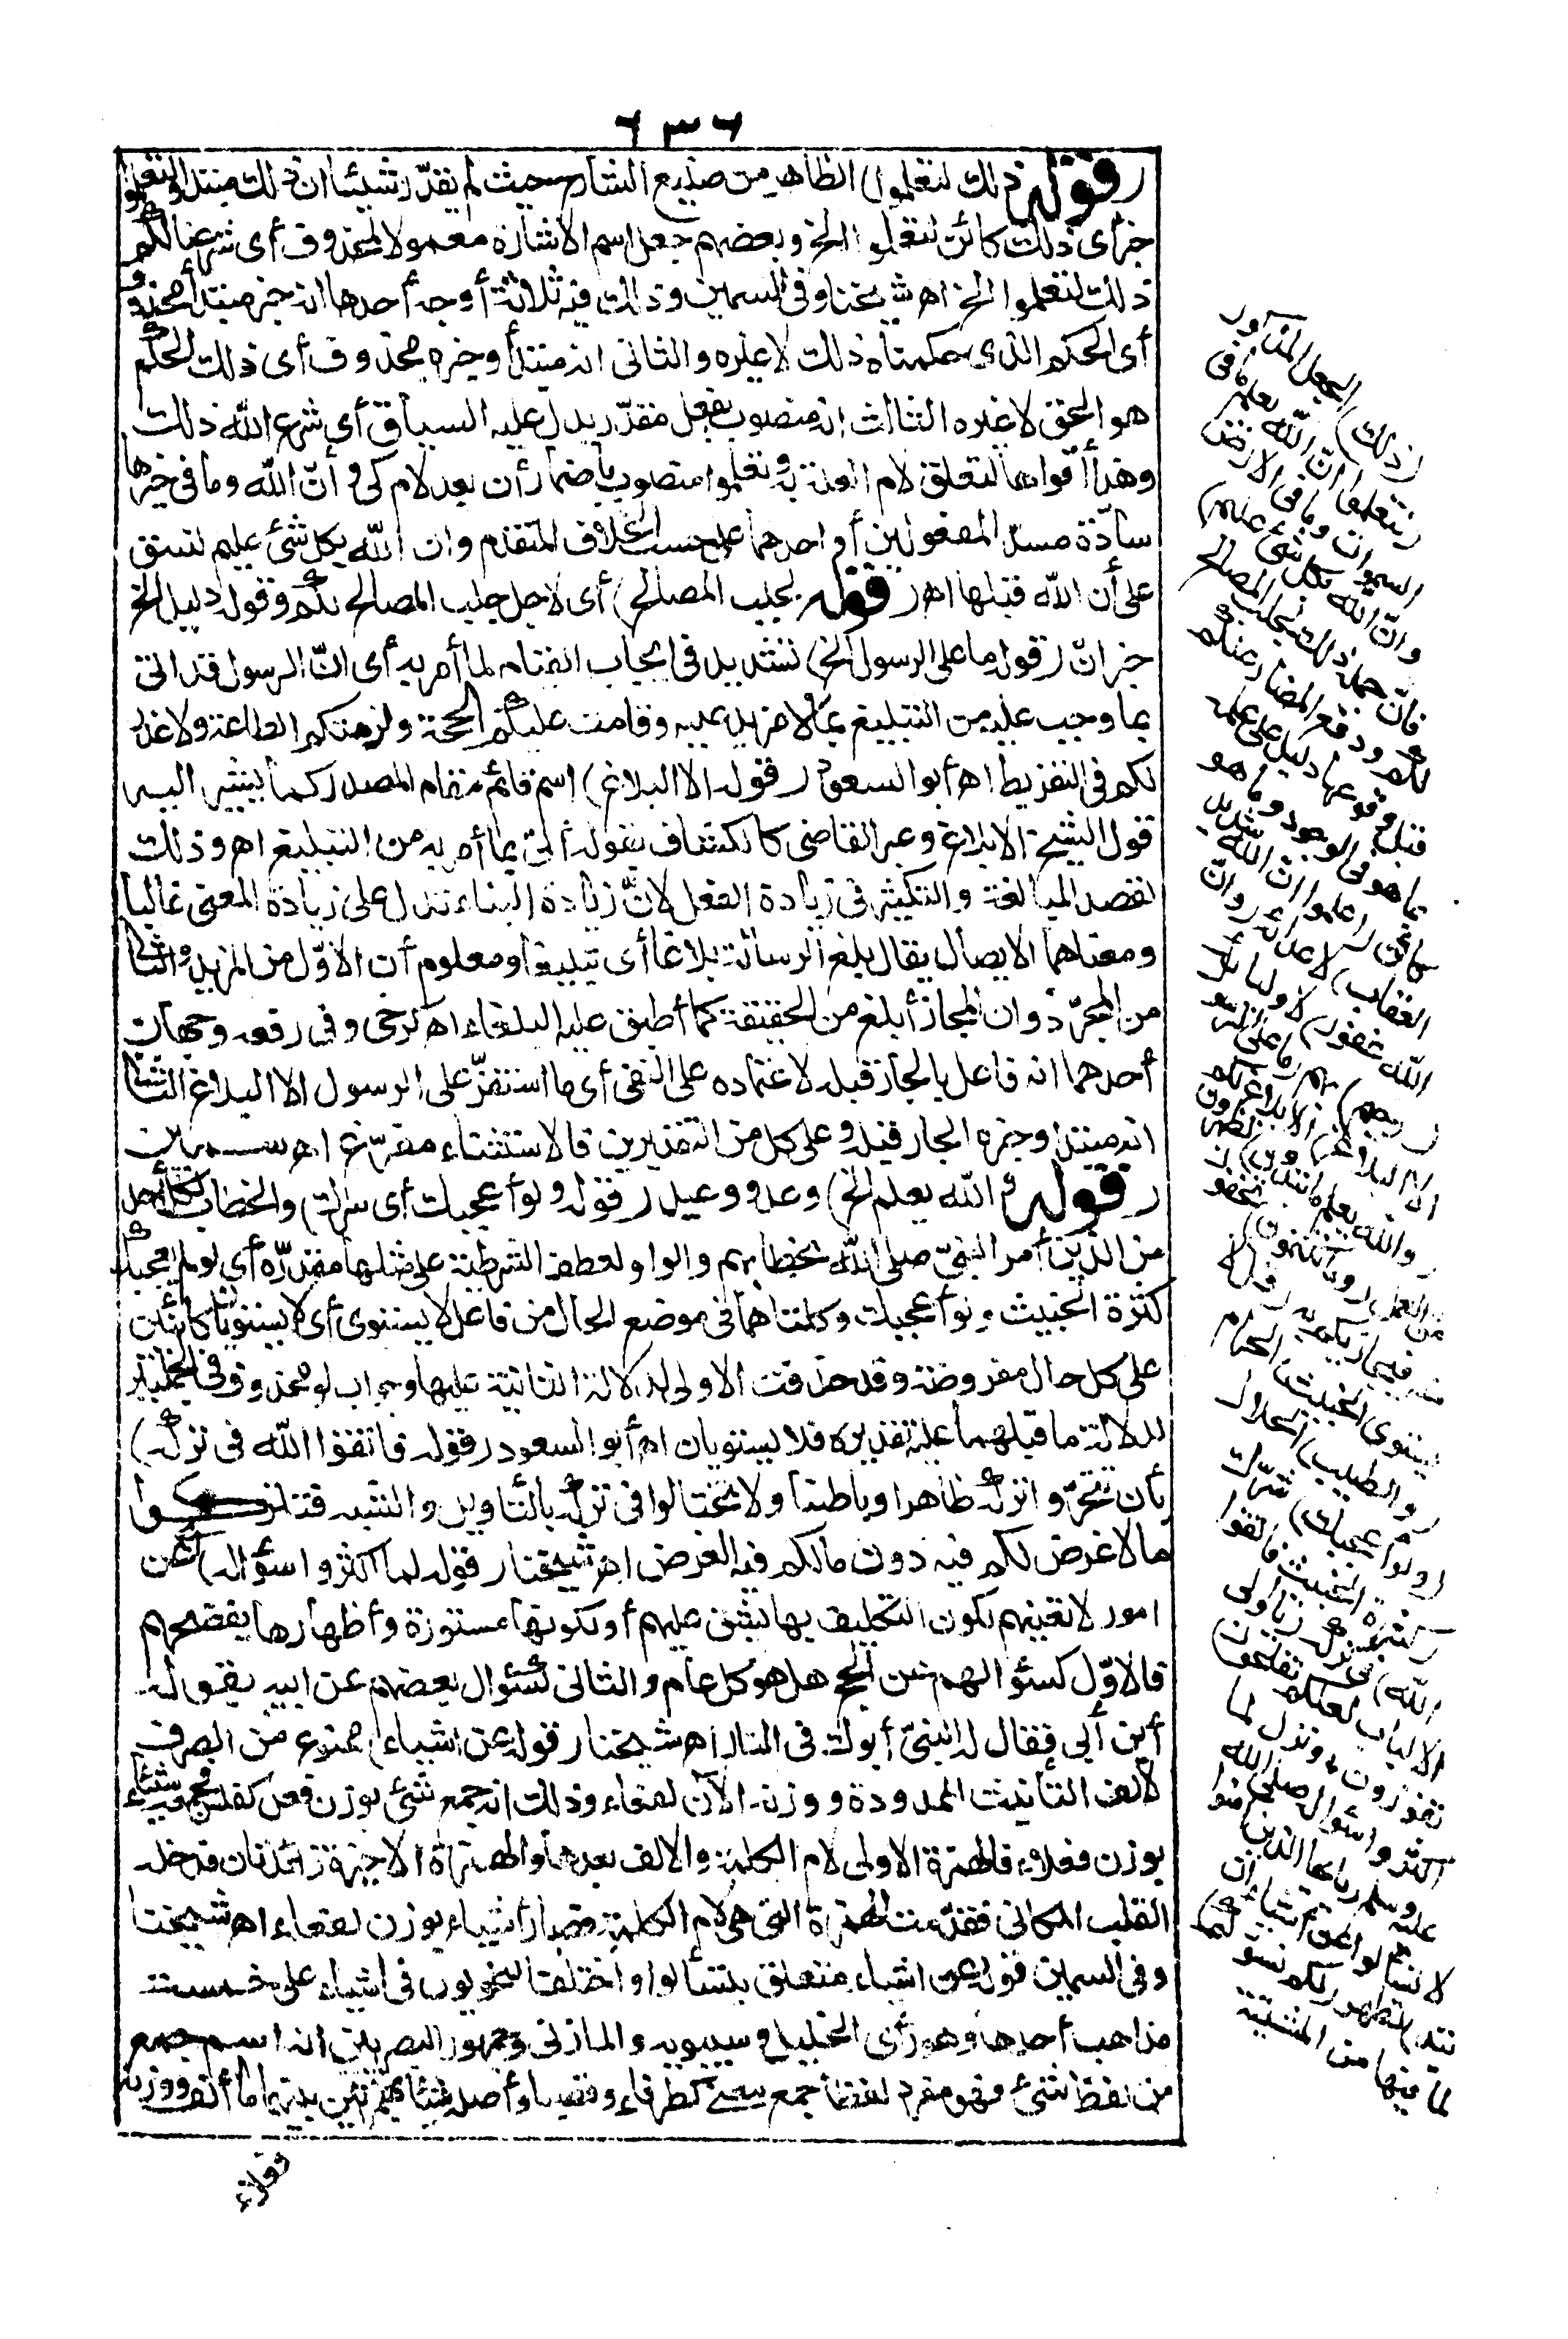 ٦٣٦
(قوله ذلك لتعلموا) الظاهر من صنيع الشارح حيث لم يقدّر شيئا ان ذلك مبتدأ ولتعلموا
خبر أى ذلك كائن لتعلموا الخ وبعضهم جعل اسم الاشارة معمولا لمحذوف أى شرعنا لكم
ذلك لتعلموا الخ اه شيخنا وفى السمين وذلك فيه ثلاثة أوجه أحدها انه خبر مبتدأ محذوف
أى الحكم الذى حكمناه ذلك لا غيره والثانى انه مبتدأ وخبره محذوف أى ذلك الحكم
هو الحق لا غيره الثالث انه منصوب بفعل مقدّر يدل عليه السياق أى شرع الله ذلك
وهذا أقواها لتعلق لام العلة به وتعلموا منصوب باضمار أن بعد لام كى و أنّ الله وما فى خبرها
سادّة مسدّ المفعولين أو احدهما على حسب الخلاف المتقدم وان الله بكل شئ عليم نسق
على أن الله قبلها اه (قوله لجلب المصالح) أى لاجل جلب المصالح لكم وقوله دليل الخ
خبر انّ (قوله ما على الرسول الخ) تشديد فى ايجاب القيام لما أمر به أى انّ الرسول قد اتى
بما وجب عليه من التبليغ بما لا مزيد عليه وقامت عليكم الحجة ولزمتكم الطاعة ولا عذر
لكم فى التفريط اه أبو السعود (قوله الا البلاغ) اسم قائم مقام المصدر كما يشير اليه
قول الشيخ الابلاغ وعبر القاضى كالكشاف بقوله أتى بما أمر به من التبليغ اه وذلك
لقصد المبالغة والتكثير فى زيادة الفعل لانّ زيادة البناء تدل على زيادة المعنى غالبا
ومعناهما الايصال يقال بلغ الرسالة بلاغا أى تبليغا ومعلوم أن الاوّل من المزيد والثانى
من المجرّد وان المجاز أبلغ من الحقيقة كما أطبق عليه البلغاء اه كرخى وفى رفعه وجهان
أحدهما انه فاعل بالجار قبله لاعتماده على النفى أى ما استقرّ على الرسول الا البلاغ الثانى
انه مبتدأ وخبره الجار قبله وعلى كل من التقديرين فالاستثناء مفرّغ اه سمين
(قوله والله يعلم الخ) وعد ووعيد (قوله ولو أعجبك أى سرك) والخطاب لكل أحد
من الذين أمر النبىّ صلى الله بخطابهم والواو لعطف الشرطية على مثلها مقدّرة أى لو لم يعجبك
كثرة الخبيث ولو أعجبك وكلتاهما فى موضع الحال من فاعل لا يستوى أى لا يستويان كائنين
على كل حال مفروضة وقد حذفت الاولى لدلالة الثانية عليها وجواب لو محذوف فى الجملتين
لدلالة ما قبلهما عليه تقديره فلا يستويان اه أبو السعود (قوله فاتقوا الله فى تركه)
بأن تتحرّوا تركه ظاهرا وباطنا ولا تحتالوا فى تركه بالتأويل والشبه فتتركوا
ما لا غرض لكم فيه دون ما لكم فيه الغرض اه شيخنا (قوله لما اكثروا سؤاله) أى عن
امور لا تعنيهم لكون التكليف بها يشق عليهم أو لكونها مستورة واظهارها يفضحهم
فالاوّل كسؤالهم عن الحج هل هو كل عام والثانى كسؤال بعضهم عن ابيه بقوله
أين أبى فقال له النبىّ أبوك فى النار اه شيخنا (قوله عن اشياء) ممنوع من الصرف
لألف التأنيث الممدودة ووزنه الآن لفعاء وذلك انه جمع شئ بوزن فعل كفلس فجمعه شيئاء
بوزن فعلاء فالهمزة الاولى لام الكلمة والالف بعدها والهمزة الاخيرة زائدتان فدخله
القلب المكانى فقدّمت الهمزة التى هى لام الكلمة فصار أشياء بوزن لفعاء اه شيخنا
وفى السمين قوله عن اشياء متعلق بتسألوا واختلف النحويون فى اشياء على خمسة
مذاهب أحدها وهو رأى الخليل وسيبويه والمازنى وجمهور البصريين انه اسم جمع
من لفظ شئ فهو مفرد لفظا جمع معنى كطرفاء وقصباء وأصله شيئاء بهمزتين بينهما ألف ووزنه
فعلاء
(ذلك) الجعل المذكور
(لتعلموا ان الله يعلم ما فى
السموات وما فى الارض
وانّ الله بكل شئ عليم)
فانّ جعله ذلك لجلب المصالح
لكم ودفع المضار عنكم
قبل وقوعها دليل على علمه
بما هو فى الوجود وما هو
كائن (اعلموا ان الله شديد
العقاب) لاعدائه (وانّ
الله غفور) لاوليائه
(رحيم) بهم (ما على الرسول
الا البلاغ) الابلاغ لكم
(والله يعلم ما تبدون) تظهرون
من العمل (وما تكتمون) تخفون
منه فيجازيكم به (قل لا
يستوى الخبيث) الحرام
(والطيب) الحلال
(ولو أعجبك) سرّك
(كثرة الخبيث فاتقوا
الله) فى تركه (يا أولى
الالباب لعلكم تفلحون)
تفوزون * ونزل لما
اكثروا سؤاله صلى الله
عليه وسلم (يا أيها الذين آمنوا
لا تسألوا عن أشياء ان
تبد) تظهر (لكم تسؤكم)
لما فيها من المشقة